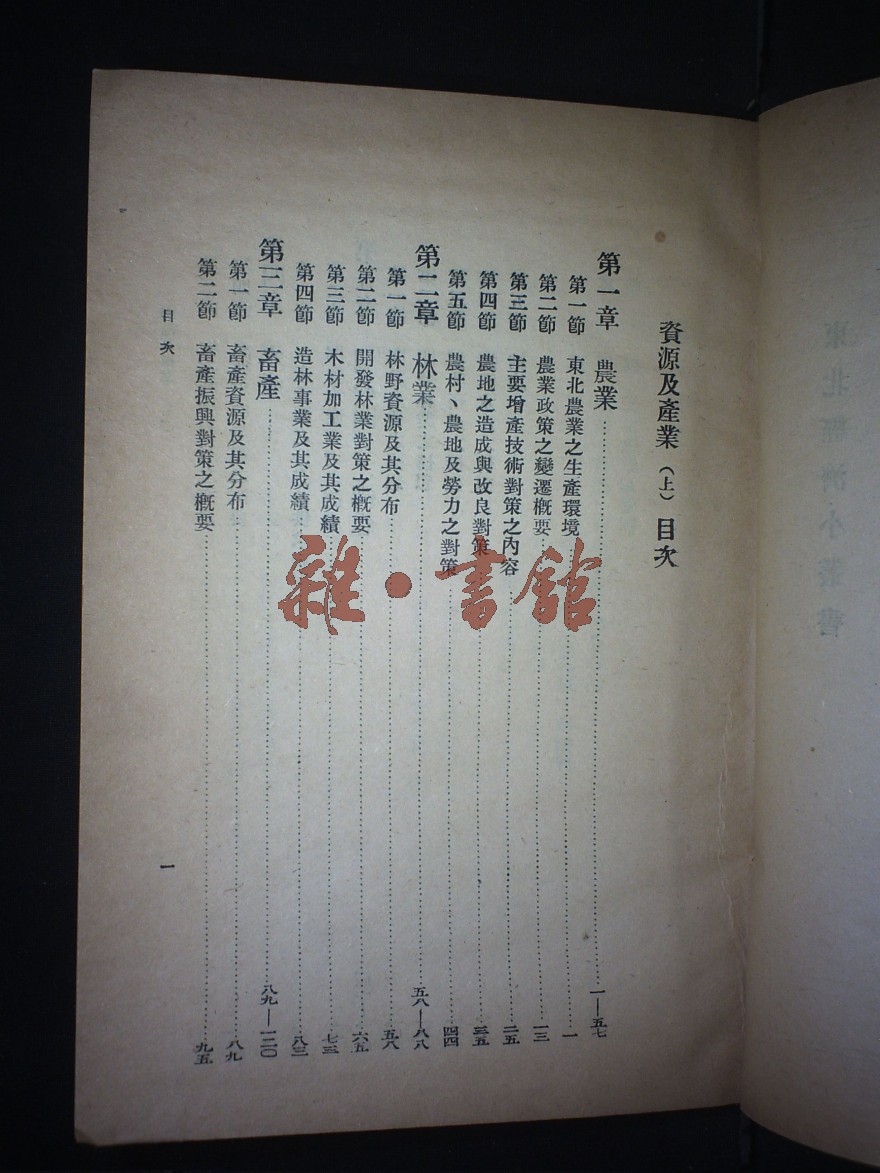 資源及產業（上）目次
第一章 農業 一—五七
第一節 東北農業之生產環境 一
第二節 農業政策之變遷概要 一三
第三節 主要增產技術對策之內容 二五
第四節 農地之造成與改良對策 三五
第五節 農村、農地及勞力之對策 四四
第二章 林業 五八—八八
第一節 林野資源及其分布 五八
第二節 開發林業對策之概要 六五
第三節 木材加工業及其成績 七三
第四節 造林事業及其成績 八三
第三章 畜產 八九—一二〇
第一節 畜產資源及其分布 八九
第二節 畜產振興對策之概要 九五
目次
一
雜·書館
東北經濟小叢書